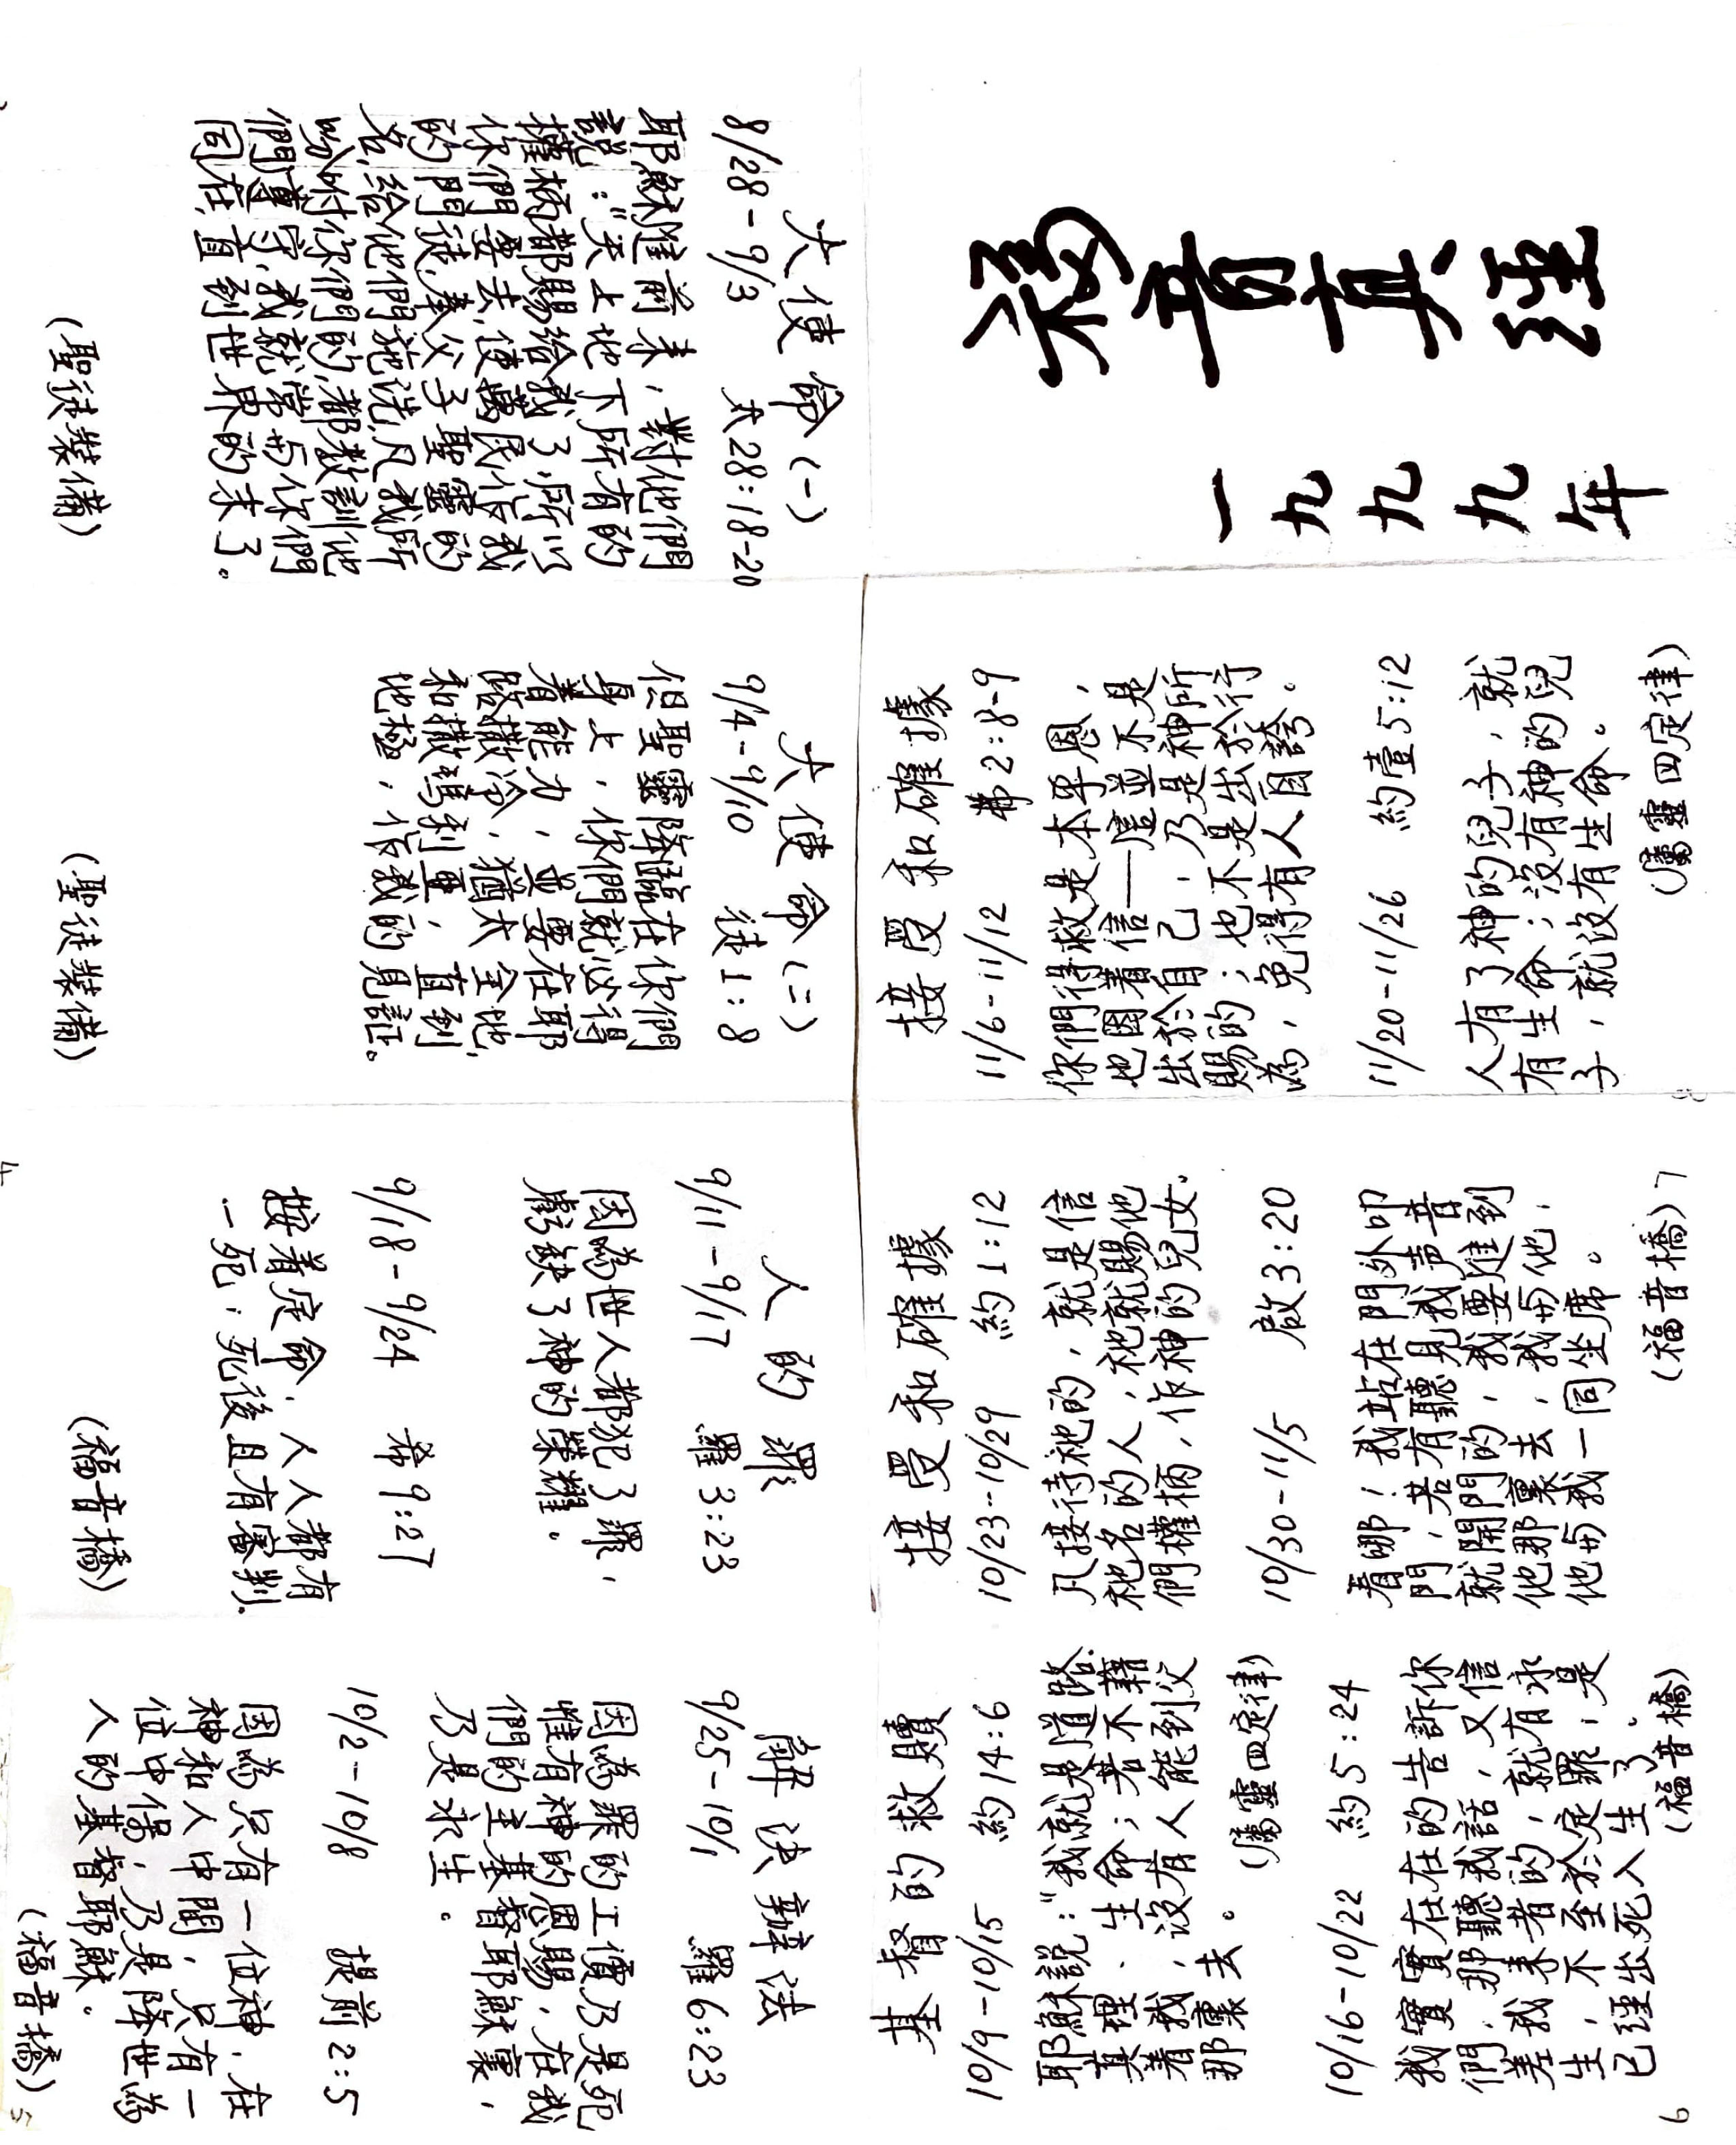 福音真經
一九九九年
大使命(一)
8/28-9/3 太28:18-20
耶穌進前來，對他們
說："天上地下所有的
權柄都賜給我了，所以
你們要去，使萬民作我
的門徒，奉父子聖靈的
名，給他們施洗，凡我所
吩咐你們的，都教訓他
們遵守，我就常与你們
同在，直到世界的末了。
(聖徒裝備)
大使命(二)
9/4-9/10 徒1:8
但聖靈降臨在你們
身上，你們就必得
着能力，並要在耶
路撒冷，猶太全地，
和撒瑪利亞，直到
地極，作我的見証。
(聖徒裝備)
人的罪
9/11-9/17 羅3:23
因為世人都犯了罪，
虧缺了神的榮耀。
9/18-9/24 希9:27
按着定命，人人都有
一死；死後且有審判。
(福音橋)
4
解決辦法
9/25-10/1 羅6:23
因為罪的工價乃是死
惟有神的恩賜，在我
們的主基督耶穌裏，
乃是永生。
10/2-10/8 提前2:5
因為只有一位神，在
神和人中間，只有一
位中保，乃是降世為
人的基督耶穌。
(福音橋)
5
基督的救贖
10/9-10/15 約14:6
耶穌說："我就是道路
真理、生命；若不藉
着我，沒有人能到父
那裏去。
(屬靈四定律)
10/16-10/22 約5:24
我實實在在的告訴你
們，那聽我話，又信
差我來者的，就有永
生，不至於定罪；是
已經出死入生了。
(福音橋)
6
接受和確據
10/23-10/29 約1:12
凡接待祂的，就是信
祂名的人，祂就賜他
們權柄，作神的兒女。
10/30-11/5 啟3:20
看哪！我站在門外叩
門，若有聽見我声音
就開門的，我要進到
他那裏去，我与他，
他与我一同坐席。
(福音橋)
7
接受和確據
11/6-11/12 弗2:8-9
你們得救是本乎恩，
也因着信——這並不是
出於自己，乃是神所
賜的；也不是出於行
為，免得有人自誇。
11/20-11/26 約壹5:12
人有了神的兒子，就
有生命；沒有神的兒
子，就沒有生命。
(屬靈四定律)
8